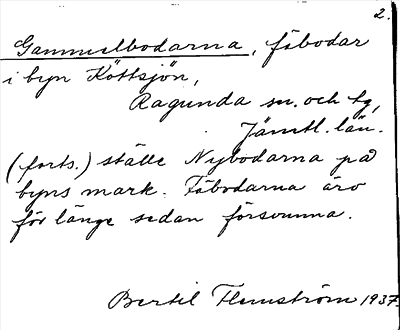 2.
Gammelbodarna, fäbodar
i byn Köttsjön,
Ragunda sn. och tg,
Jämtl. län.
(forts.) ställe Nybodarna på
byns mark. Fäbodarna äro
för länge sedan försvunna.
Bertil Flemström 1937